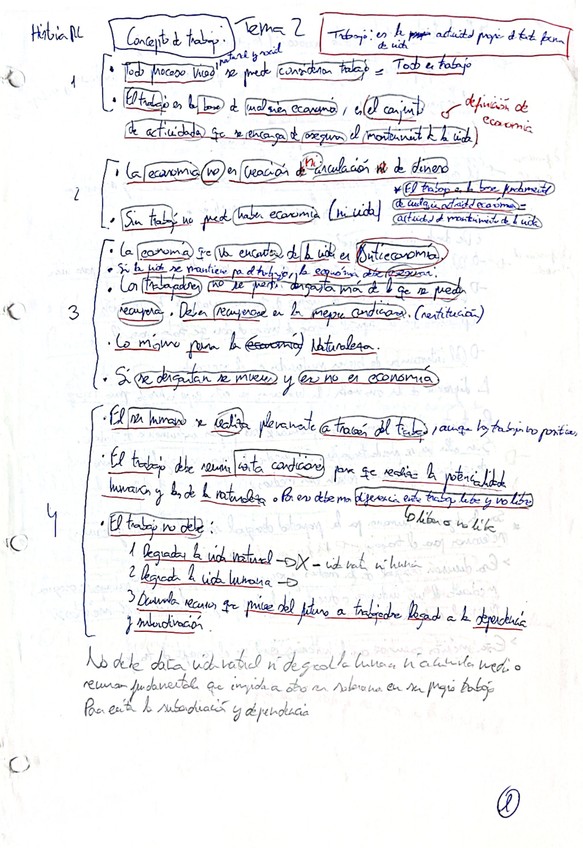 Tema 2
Concepto de trabajo:
Trabajo: es la actividad propia de toda forma
de vida
natural y social
1
· Todo proceso vivo se puede considerar trabajo = Todo es trabajo
· El trabajo es la base de cualquier economía, es el conjunto
de actividades que se encarga de asegurar el mantenimiento de la vida)
definición de
economía
2
· La economía no es creación de ni circulación de dinero
· Sin trabajo no puede haber economía (ni vida)
* El trabajo es la base fundamental
de cualquier actividad económica =
actividad de mantenimiento de la vida
3
· La economía que va en contra de la vida es Antieconomía
· Si la vida se mantiene por el trabajo, la economía debe
· Los trabajadores no se pueden desgastar más de lo que se pueden
recuperar. Deben recuperarse en las mejores condiciones. (restitución)
· Lo mismo para la (economía) Naturaleza.
· Si se desgastan se mueren y eso no es economía
4
· El ser humano se realiza plenamente a través del trabajo, aunque hay trabajo no positivo.
· El trabajo debe reunir ciertas condiciones para que realice la potencialidad
humana y las de la naturaleza. Por eso debemos diferenciar entre trabajo libre y no libre
libera o no libera
· El trabajo no debe:
1 Degradar la vida natural → X - vida nat. ni humana
2 Degradar la vida humana →
3 Acumular recursos que prive del futuro a trabajadores llegando a la dependencia
y subordinación.
No debe dañar vida natural ni degradar la humana ni acumular medios o
recursos fundamentales que impida a otro ser soberano en su propio trabajo
Para evitar la subordinación y dependencia
1